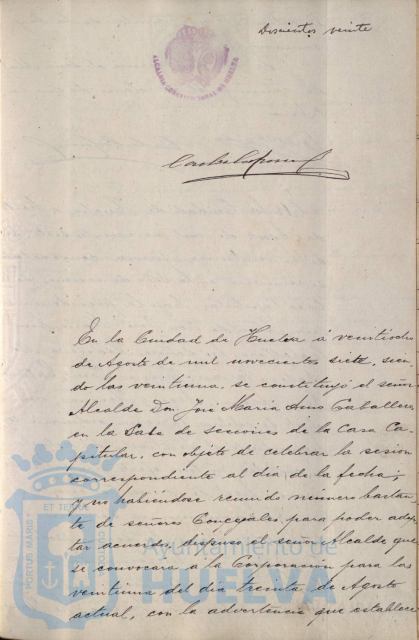 Doscientos veinte
En la Ciudad de Huelva á veintiocho
de Agosto de mil novecientos siete, sien-
do las veintiuna, se constituyó el señor
Alcalde Don José María Amo Caballero
en la Sala de sesiones de la Casa Ca-
pitular, con objeto de celebrar la sesión
correspondiente al día de la fecha;
y no habiéndose reunido número bastan-
te de señores Concejales para poder adop-
tar acuerdo, dispuso el señor Alcalde que
se convocara á la Corporación para las
veintiuna del día treinta de Agosto
actual, con la advertencia que establece
ET TERRAE
PORTUS MARIS
Ayuntamiento de
HUELVA